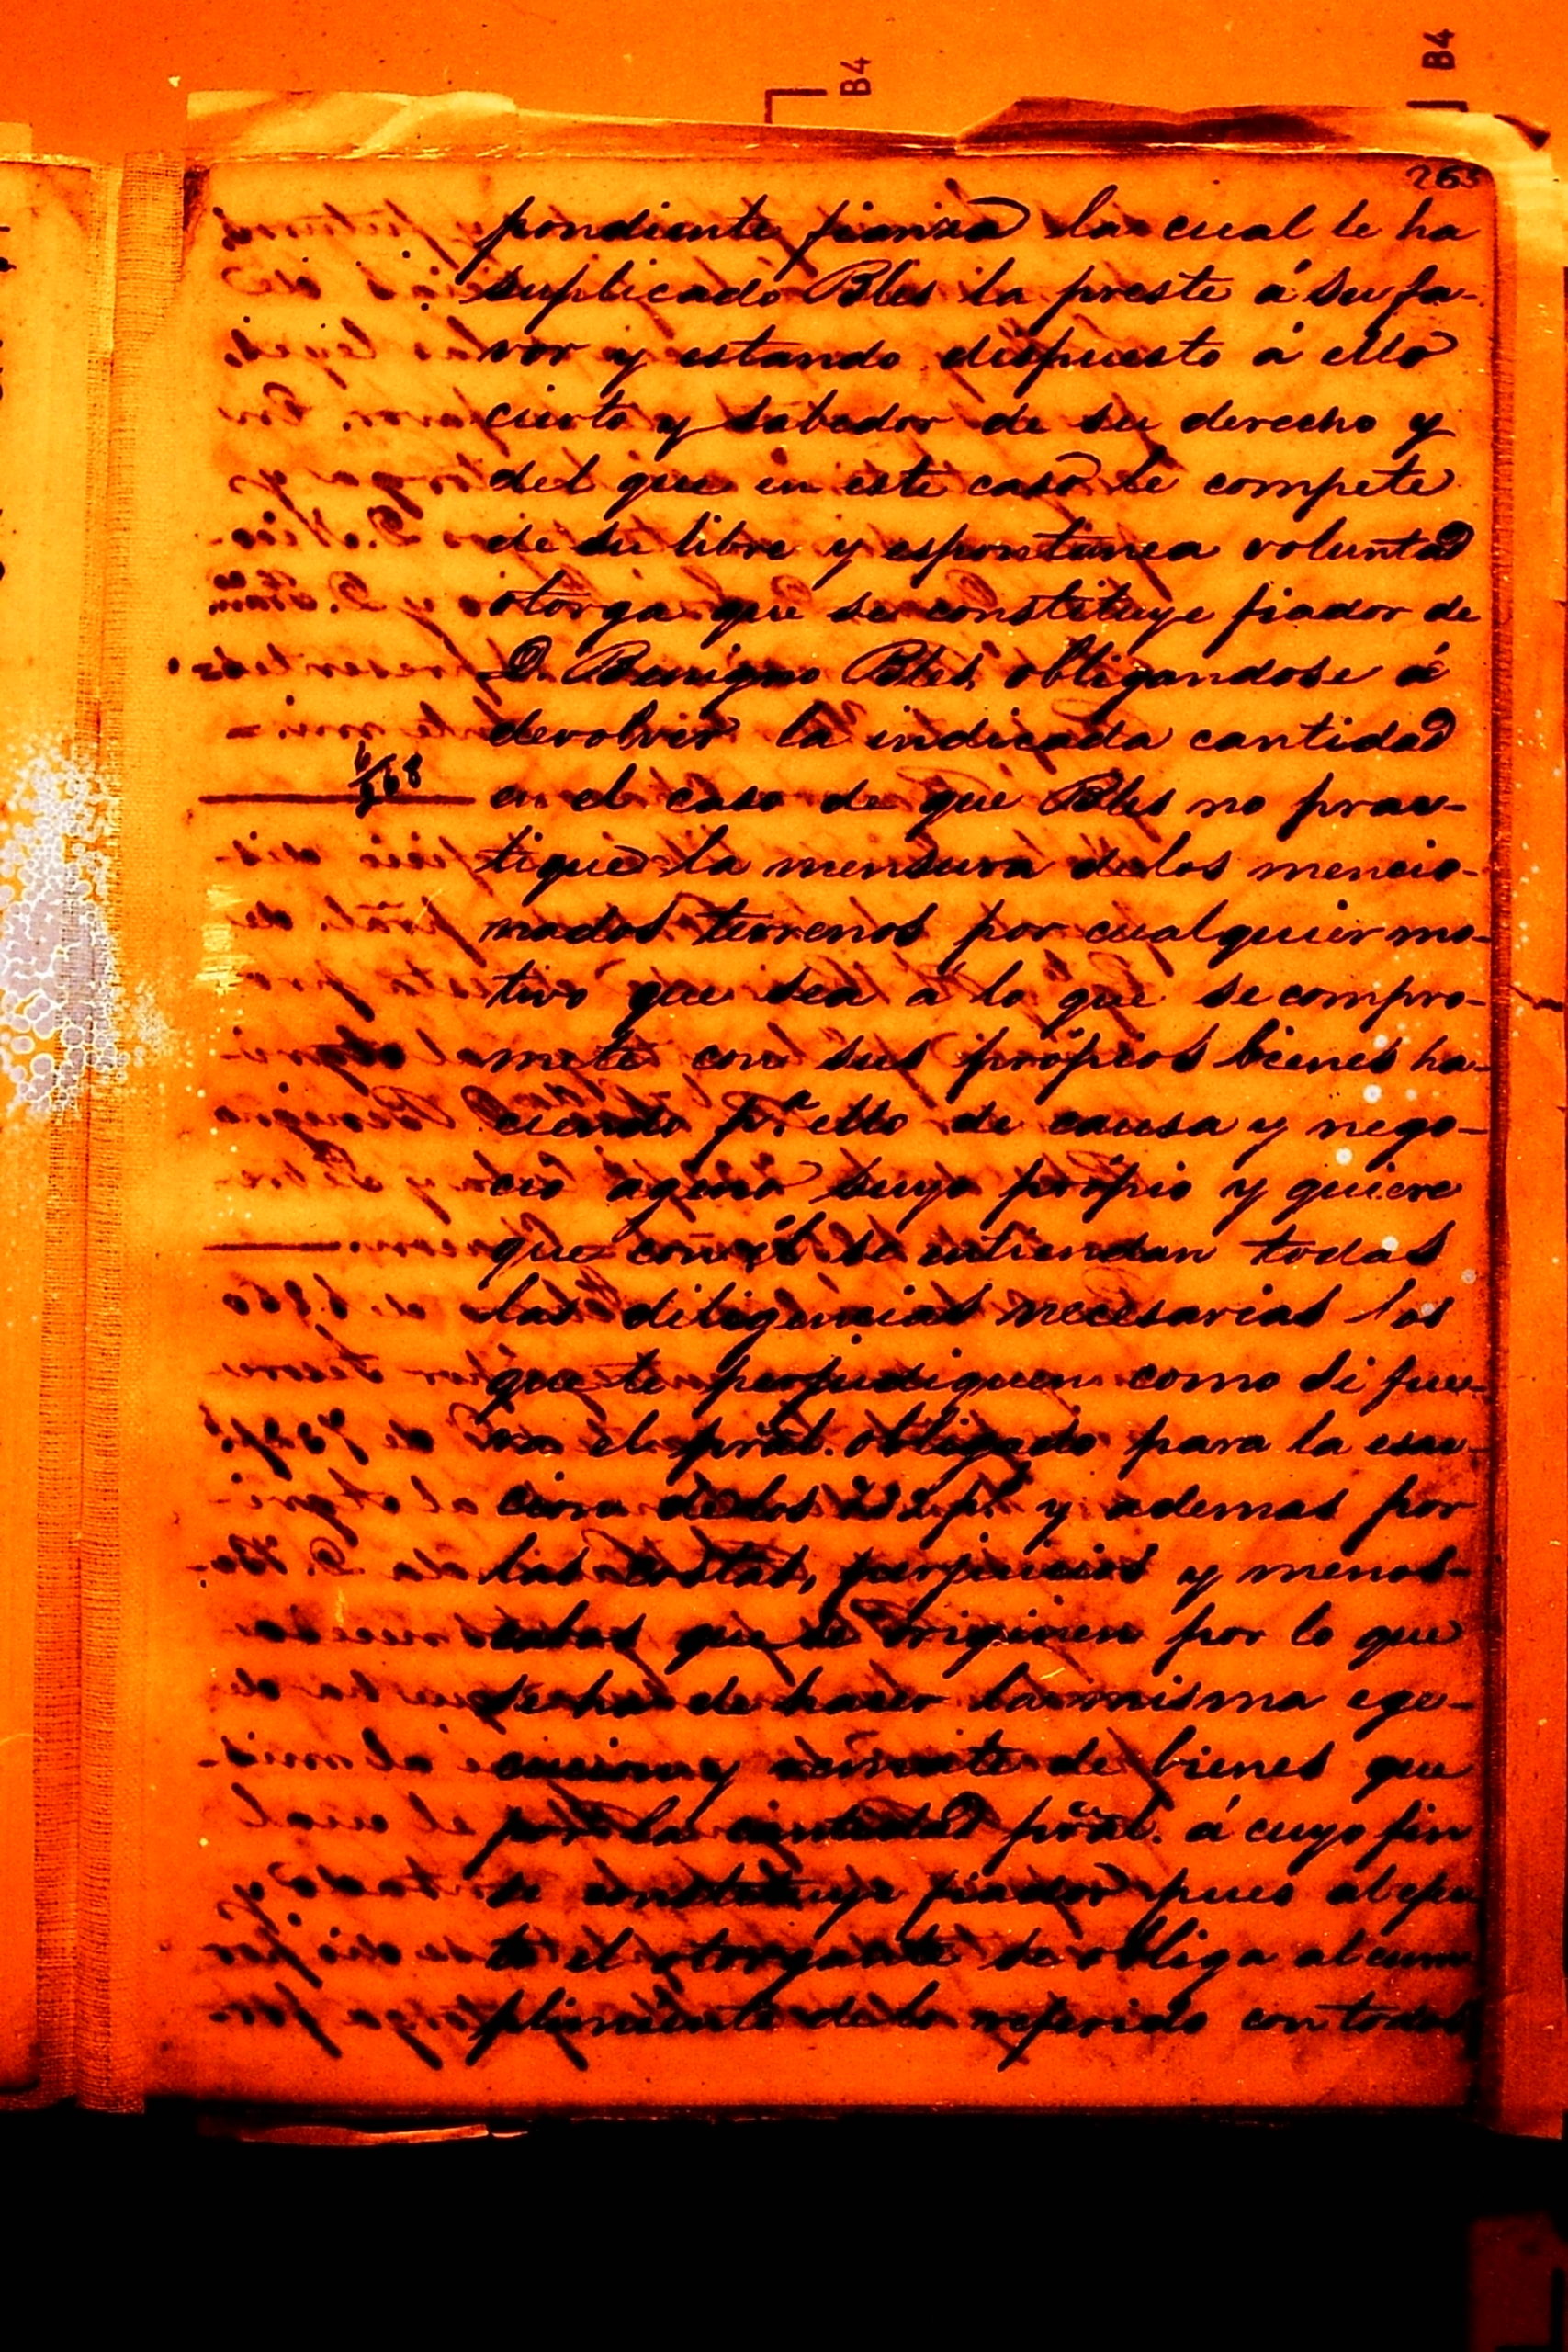 B4
B4
263
pondiente fianza la cual le ha
suplicado Bles la preste á su fa-
vor y estando dispuesto á ello
cierto y sabedor de su derecho y
del que en este caso le compete
de su libre y espontanea voluntad
otorga que se constituye fiador de
D. Benigno Bles, obligandose á
devolver la indicada cantidad
en el caso de que Bles no prac-
tique la mensura de los mencio-
nados terrenos por cualquier mo-
tivo que sea á lo que se compro-
mete con sus própios bienes ha-
ciendo pr. ello de causa y nego-
cio ageno suyo própio y quiere
que con él se entiendan todas
las diligencias necesarias los
que le perjudiquen como si fue-
ra el prãl. obligado para la esac-
cion de los 232 p.s y ademas por
las costas, perjuicios y menos-
cabos que se originen por lo que
se ha de hacer la misma ege-
cucion y remate de bienes que
por la cantidad prãl. á cuyo fin
se constituye fiador pues al efec
to el otorgante se obliga al cum
plimiento de lo referido con todos